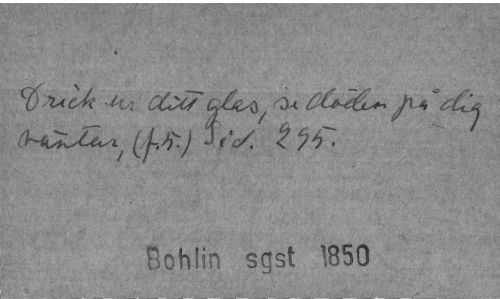 Drick ur ditt glas, se döden på dig
väntar, (f.5.) Sid. 295.
Bohlin sgst 1850